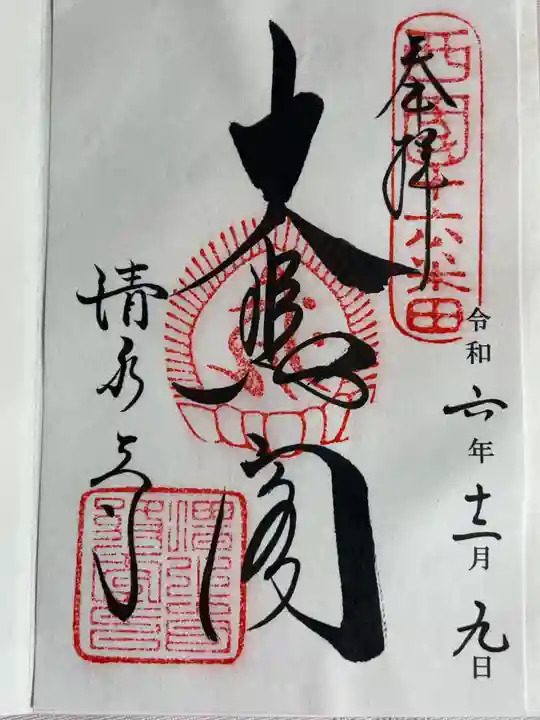 西国十六番
奉拝
大悲閣
清水寺
令和六年十二月九日